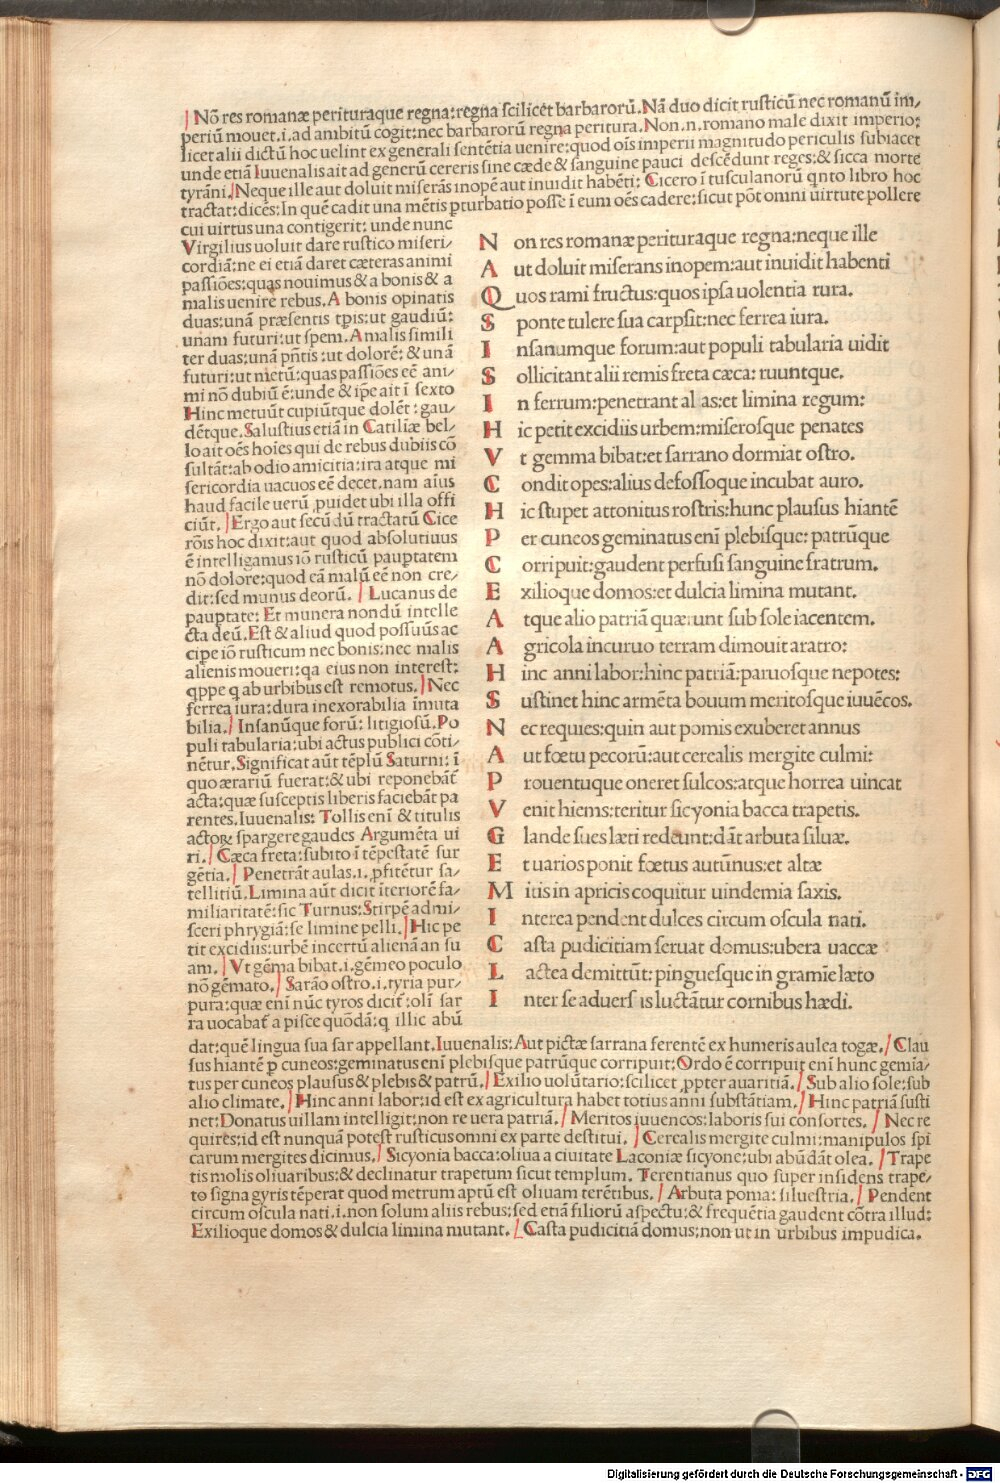 Nō res romanæ perituraque regna:regna scilicet barbarorū.Nā duo dicit rusticū nec romanū im/
periū mouet.i.ad ambitū cogit:nec barbarorū regna peritura.Non.n.romano male dixit imperio:
licet alii dictū hoc uelint ex generali sentētia uenire:quod oīs imperii magnitudo periculis subiacet
unde etiā Iuuenalis ait ad generū cereris sine cæde & sanguine pauci descēdunt reges:& sicca morte
tyrāni.Neque ille aut doluit miserās inopē aut inuidit habēti: Cicero ī tusculanorū qnto libro hoc
tractat:dicēs:In quē cadit una mētis pturbatio posse ī eum oēs cadere:sicut pōt omni uirtute pollere
cui uirtus una contigerit: unde nunc
Virgilius uoluit dare rustico miseri/
cordiā:ne ei etiā daret cæteras animi
passiōes:quas nouimus & a bonis & a
malis uenire rebus.A bonis opinatis
duas:unā præsentis tpis:ut gaudiū:
unam futuri:ut spem.A malis simili
ter duas:unā pntis :ut dolorē: & unā
futuri:ut metū:quas passiōes eē ani/
mi nō dubiū ē:unde & ipe ait ī sexto
Hinc metuūt cupiūtque dolēt : gau/
dētque.Salustius etiā in Catiliæ bel/
lo ait oēs hoīes qui de rebus dubiis cō
sultāt:ab odio amicitia:ira atque mi
sericordia uacuos eē decet.nam aīus
haud facile uerū puidet ubi illa offi
ciūt. Ergo aut secūdū tractatū Cice
rōis hoc dixit:aut quod absolutiuus
ē intelligamus iō rusticū paupetatem
nō dolore:quod eā malū eē non cre/
dit:sed munus deorū. Lucanus de
paupertate: Et munera nondū intelle
cta deū.Est & aliud quod possuūs ac
cipe iō rusticum nec bonis:nec malis
alienis moueri:qa eius non interest:
qppe q ab urbibus est remotus. Nec
ferrea iura:dura inexorabilia īmuta
bilia. Insanūque forū: litigiosū.Po
puli tabularia:ubi actus publici cōti/
nētur.Significat aūt tēplū Saturni: ī
quo ærariū fuerat:& ubi reponebāt
acta:quæ susceptis liberis faciebāt pa
rentes.Iuuenalis: Tollis enī & titulis
actorꝝ spargere gaudes Argumēta ui
ri. Cæca freta:subito ī tēpestatē sur
gētia. Penetrāt aulas.i.pfitētur sa/
tellitiū.Limina aūt dicit īteriorē fa/
miliaritatē:sic Turnus:Stirpē admi/
sceri phrygiā:se limine pelli. Hic pe
tit excidiis:urbē incertū alienā an su
am. Vt gēma bibat.i.gēmeo poculo
nō gēmato. Sarāo ostro.i.tyria pur/
pura:quæ enī nūc tyros dicit:olī sar
ra uocabat a pisce quōdā:q illic abū
dat:quē lingua sua sar appellant.Iuuenalis:Aut pictæ sarrana ferentē ex humeris aulea togæ. Clau
sus hiantē p cuneos:geminatus enī plebisque patrūque corripuit:Ordo ē corripuit enī hunc gemia/
tus per cuneos plausus & plebis & patrū. Exilio uolūtario:scilicet ppter auaritiā. Sub alio sole:sub
alio climate. Hinc anni labor:id est ex agricultura habet totius anni substātiam. Hinc patriā susti
net:Donatus uillam intelligit:non re uera patriā. Meritos iuuencos:laboris sui consortes. Nec re
quires:id est nunquā potest rusticus omni ex parte destitui. Cerealis mergite culmi:manipulos spi
carum mergites dicimus. Sicyonia bacca:oliua a ciuitate Laconiæ sicyone:ubi abūdāt olea. Trape
tis molis oliuaribus:& declinatur trapetum sicut templum. Terentianus quo super insidens trape/
to signa gyris tēperat quod metrum aptū est oliuam terētibus. Arbuta poma: siluestria. Pendent
circum oscula nati.i.non solum aliis rebus:sed etiā filiorū aspectu:& frequētia gaudent cōtra illud:
Exilioque domos & dulcia limina mutant. Casta pudicitiā domus:non ut in urbibus impudica.
N on res romanæ perituraque regna:neque ille
A ut doluit miserans inopem:aut inuidit habenti
Q uos rami fructus:quos ipsa uolentia rura.
S ponte tulere sua carpsit:nec ferrea iura.
I nsanumque forum:aut populi tabularia uidit
S ollicitant alii remis freta cæca: ruuntque.
I n ferrum:penetrant al as:et limina regum:
H ic petit excidiis urbem:miserosque penates
V t gemma bibat:et sarrano dormiat ostro.
C ondit opes:alius defossoque incubat auro.
H ic stupet attonitus rostris:hunc plausus hiantē
P er cuneos geminatus enī plebisque: patrūque
C orripuit:gaudent perfusi sanguine fratrum.
E xilioque domos:et dulcia limina mutant.
A tque alio patriā quærunt sub sole iacentem.
A gricola incuruo terram dimouit aratro:
H inc anni labor:hinc patriā:paruosque nepotes:
S ustinet hinc armēta bouum meritosque iuuēcos.
N ec requies:quin aut pomis exuberet annus
A ut fœtu pecorū:aut cerealis mergite culmi:
P rouentuque oneret sulcos:atque horrea uincat
V enit hiems:teritur sicyonia bacca trapetis.
G lande sues læti redeunt:dāt arbuta siluæ.
E t uarios ponit fœtus autūnus:et altæ
M itis in apricis coquitur uindemia saxis.
I nterea pendent dulces circum oscula nati.
C asta pudicitiam seruat domus:ubera uaccæ
L actea demittūt: pinguesque in gramīe læto
I nter se aduers is luctātur cornibus hædi.
Digitalisierung gefördert durch die Deutsche Forschungsgemeinschaft - DFG